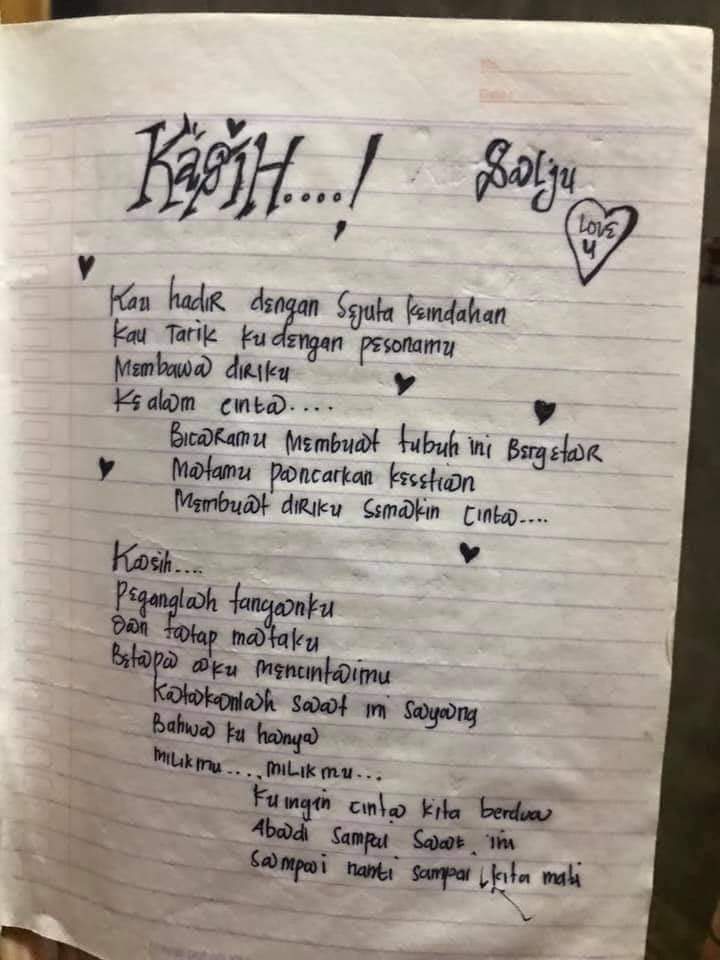 Kasih....! Salju
LOVE
u
Kau hadir dengan sejuta keindahan
Kau Tarik ku dengan pesonamu
Membawa diriku
Ke alam cinta....
Bicaramu Membuat tubuh ini Bergetar
Matamu pancarkan kesetian
Membuat diriku semakin cinta....
Kasih....
Peganglah tanganku
Dan tatap mataku
Betapa aku mencintaimu
Katakanlah saat ini sayang
Bahwa ku hanya
milikmu...., milikmu...
Ku ingin cinta kita berdua
Abadi sampai saat ini
Sampai nanti sampai kita mati